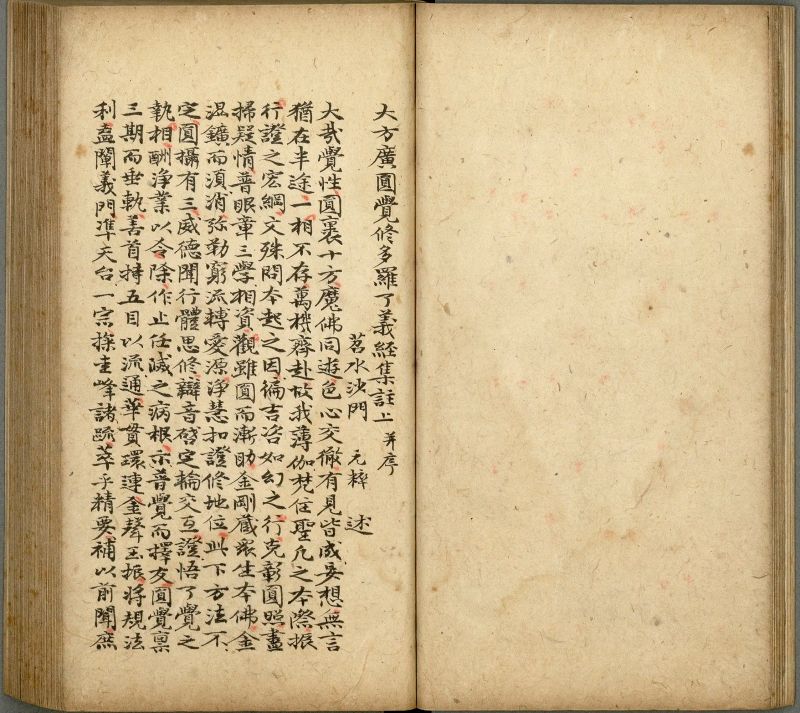 大方廣圓覺修多羅了義經集註上 并序
苕水沙門 元粹 述
大哉覺性圓裹十方魔佛同遊色心交徹有見皆成妄想無言
猶在半途一相不存萬機齊赴故我薄伽梵住聖凡之本際振
行證之宏綱文殊問本起之因徧吉咨如幻之行克彰圓照盡
掃疑情普眼章三學相資觀雖圓而漸助金剛藏衆生本佛金
混鑛而須消弥勒窮流轉愛源淨慧扣證修地位此下方法不
定圓攝有三威德聞行體思修辯音啓定輪交互證悟了覺之
執相酬淨業以令除作止任滅之病根示普覺而擇友圓覺稟
三期而垂軌善首持五目以流通華貫環連金聲玉振將規法
利盍闡義門準天台一宗採圭峰諸䟽萃乎精要補以前聞庶